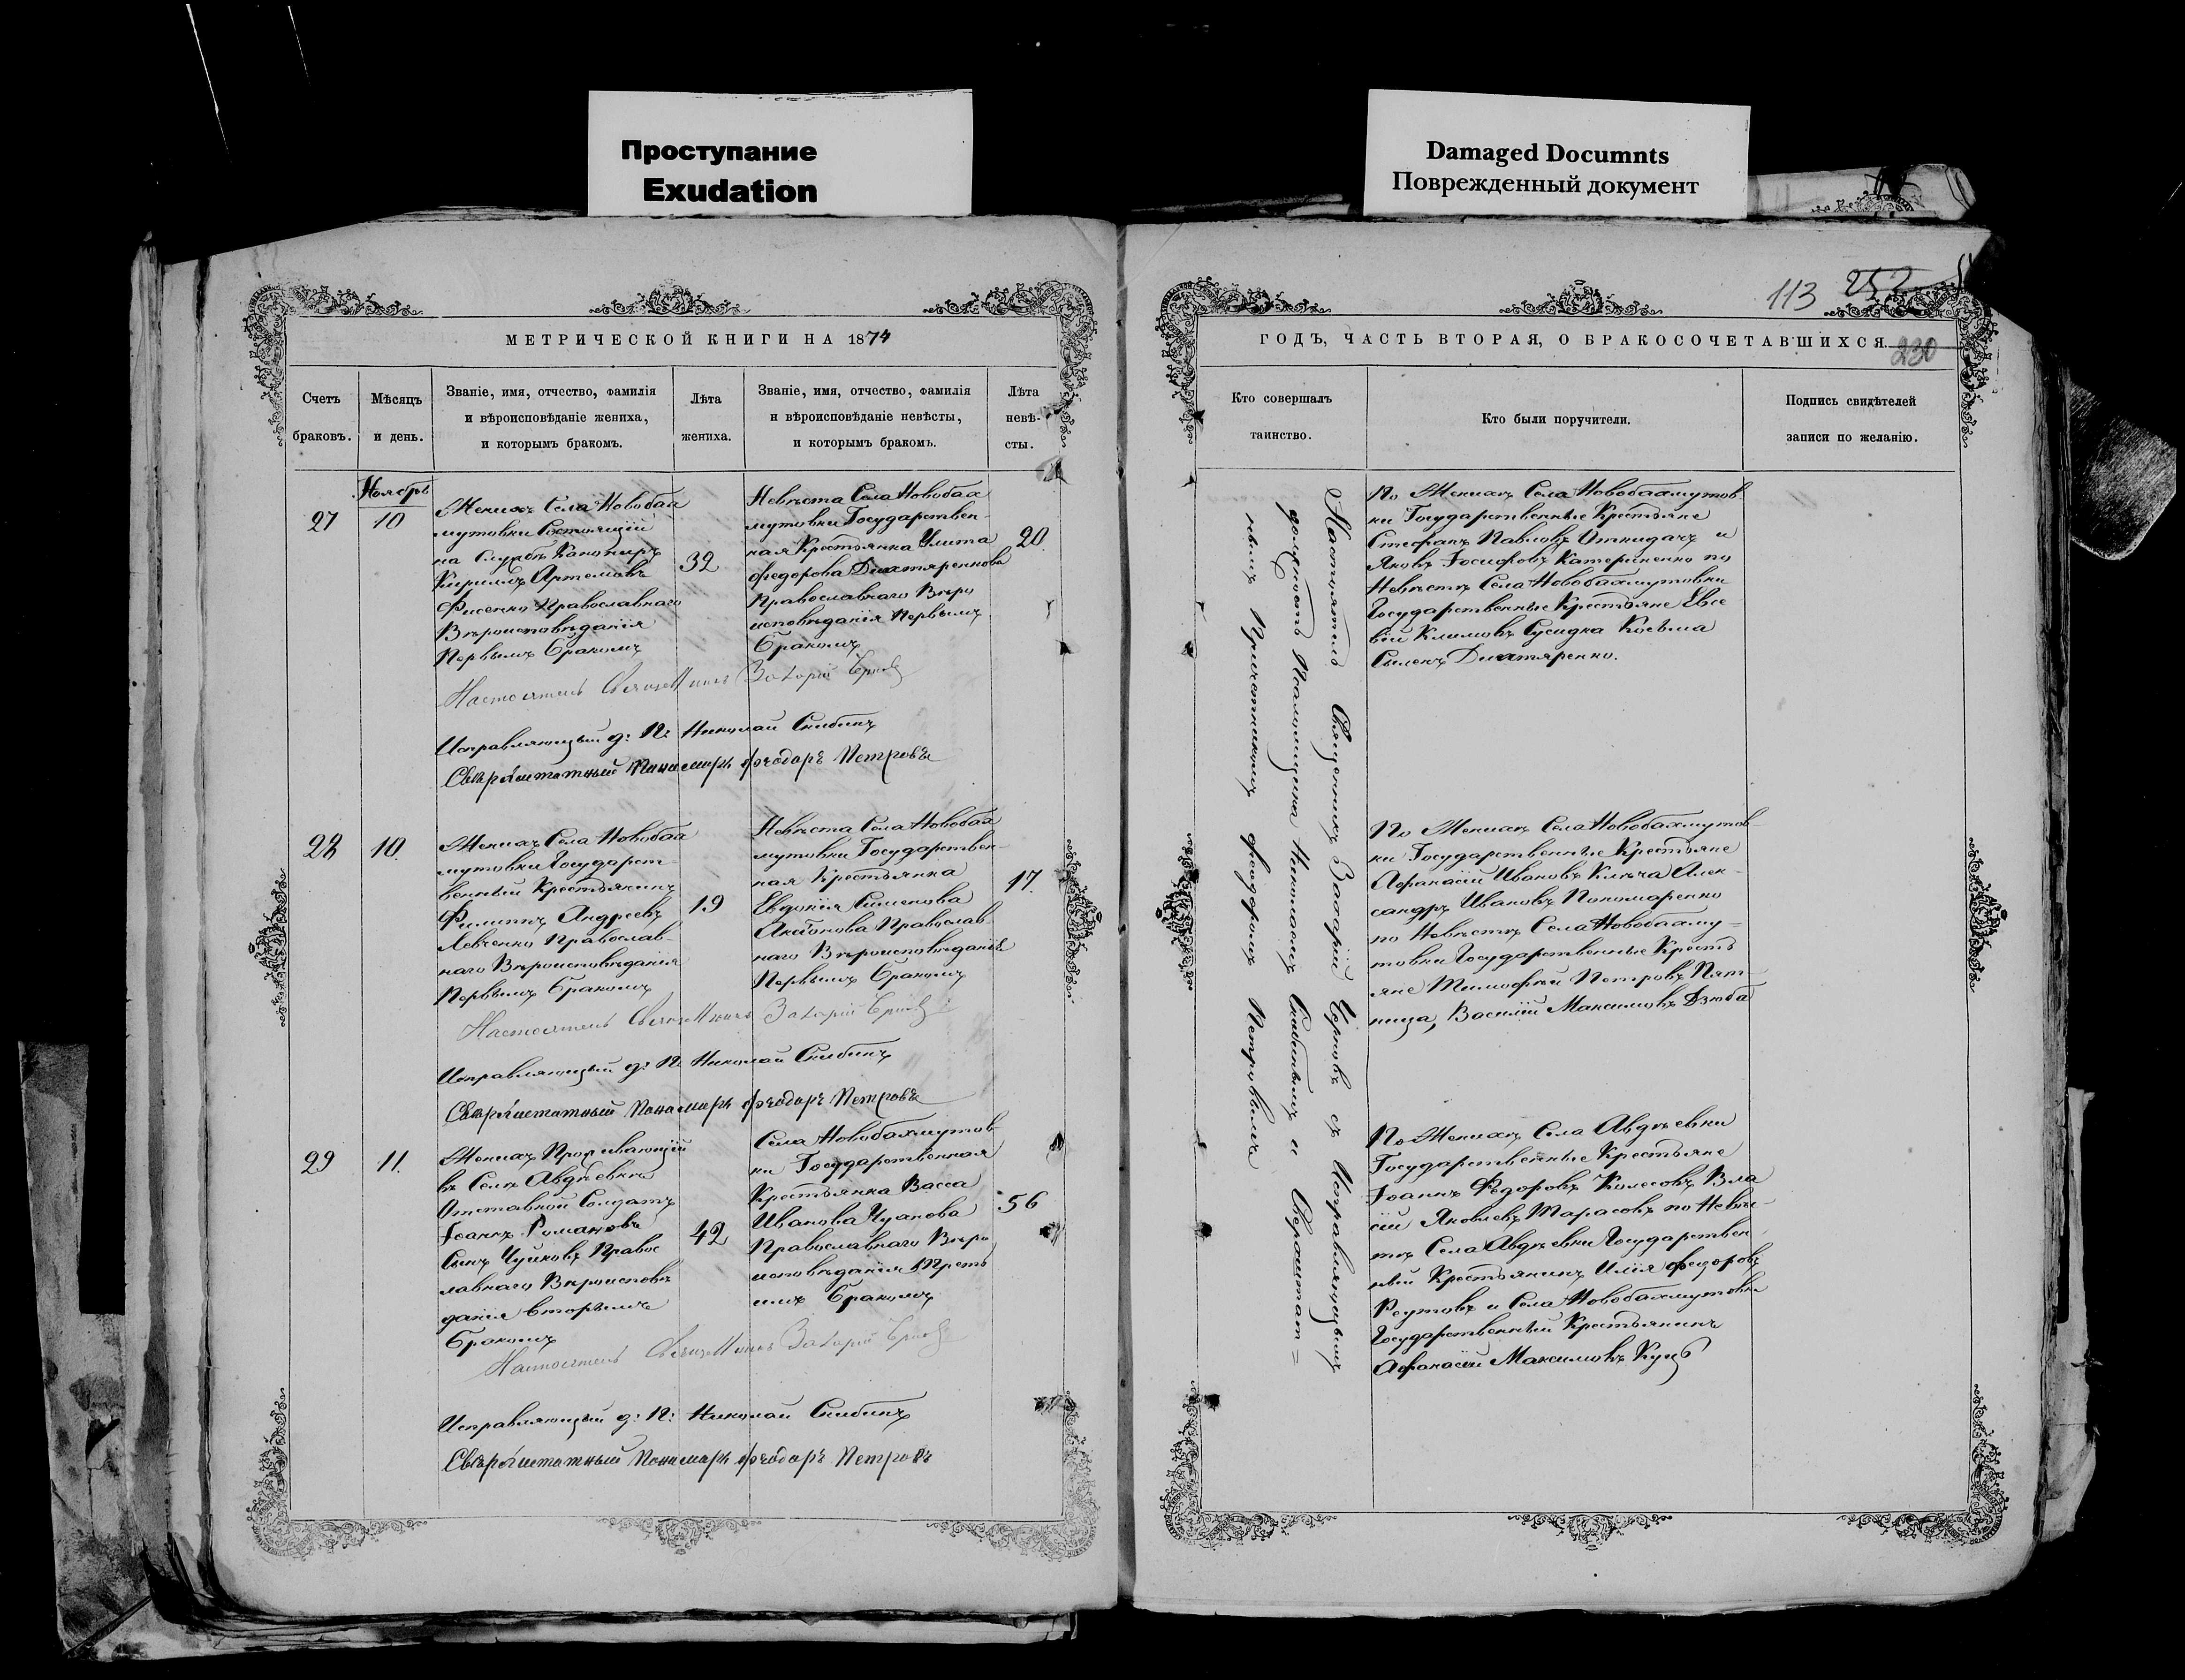 Проступание
Exudation
Damaged Documnts
Поврежденный документ
МЕТРИЧЕСКОЙ КНИГИ НА 1874
Счетъ
браковъ.
Мѣсяцъ
и день.
Званіе, имя, отчество, фамилія
и вѣроисповѣданіе жениха,
и которымъ бракомъ.
Лѣта
жениха.
Званіе, имя, отчество, фамилія
и вѣроисповѣданіе невѣсты,
и которымъ бракомъ.
Лѣта
невѣ-
сты.
Ноябрь
27
10
Женихъ Села Новобах
мутовки Состоящій
на Службѣ Канониръ
Кирилъ Артемовъ
Фисенко Православнаго
Вѣроисповѣданія
Первымъ Бракомъ
32
Невѣста Села Новобах
мутовки Государствен-
ная Крестьянка Улита
Федорова Дихтяренкова
Православнаго Вѣро
исповѣданія Первымъ
Бракомъ
20
Настоятель Священникъ Захарій Черновъ
Исправляющій д: П: Николай Скибинъ
Сверхштатный Пономарь Феодоръ Петровъ
28
10.
Женихъ Села Новобах
мутовки Государст-
венный Крестьянинъ
Филиппъ Андреевъ
Левченко Православ-
наго Вѣроисповѣданія
Первымъ Бракомъ
19
Невѣста Села Новобах
мутовки Государствен-
ная Крестьянка
Евдокія Симеонова
Православ
наго Вѣроисповѣданія
Первымъ Бракомъ
17.
Настоятель Священникъ Захарій Черновъ
Исправляющій д: П: Николай Скибинъ
Сверхштатный Пономарь Феодоръ Петровъ
29
11.
Женихъ Проживающій
въ Селѣ Авдѣевкѣ
Отставной Солдатъ
Іоаннъ Романовъ
Сынъ Чуйковъ Правос
лавнаго Вѣроисповѣ
данія Вторымъ
Бракомъ
42
Села Новобахмутов
ки Государственная
Крестьянка Васса
Иванова
Православнаго Вѣро
исповѣданія Треть
имъ Бракомъ
56
Настоятель Священникъ Захарій Черновъ
Исправляющій д: П: Николай Скибинъ
Сверхштатный Пономарь Феодоръ Петровъ
113 252
ГОДЪ, ЧАСТЬ ВТОРАЯ, О БРАКОСОЧЕТАВШИХСЯ
230
Кто совершалъ
таинство.
Кто были поручители.
Подпись свидѣтелей
записи по желанію.
Настоятель Священникъ Захарій Черновъ съ Исправляющимъ
должность Псаломщика Николаемъ Скибинымъ и Сверхштат=
нымъ Причетникомъ Феодоромъ Петровымъ
По Женихѣ Села Новобахмутов
ки Государственные Крестьяне
Стефанъ Павловъ Откидачъ и
Яковъ Іосифовъ Катериненко по
Невѣстѣ Села Новобахмутовки
Государственные Крестьяне Евсе
вій Климовъ Сусидка Косьма
Дихтяренко.
По Женихѣ Села Новобахмутов-
ки Государственные Крестьяне
Афанасій Ивановъ Ключа Алек-
сандръ Ивановъ Пономаренко
по Невѣстѣ Села Новобахму=
товки Государственные Кресть
яне Тимофей Петровъ Пят
ница, Василій Максимовъ Дзюба
По Женихѣ Села Авдѣевки
Государственные Крестьяне
Іоаннъ Федоровъ Колесовъ Вла
сій Яковлевъ Тарасовъ по Невѣс-
тѣ Села Авдѣевки Государствен
ный Крестьянинъ Илія Федоровъ
Реутовъ и Села Новобахмутовки
Государственный Крестьянинъ
Афанасій Максимовъ Куцъ